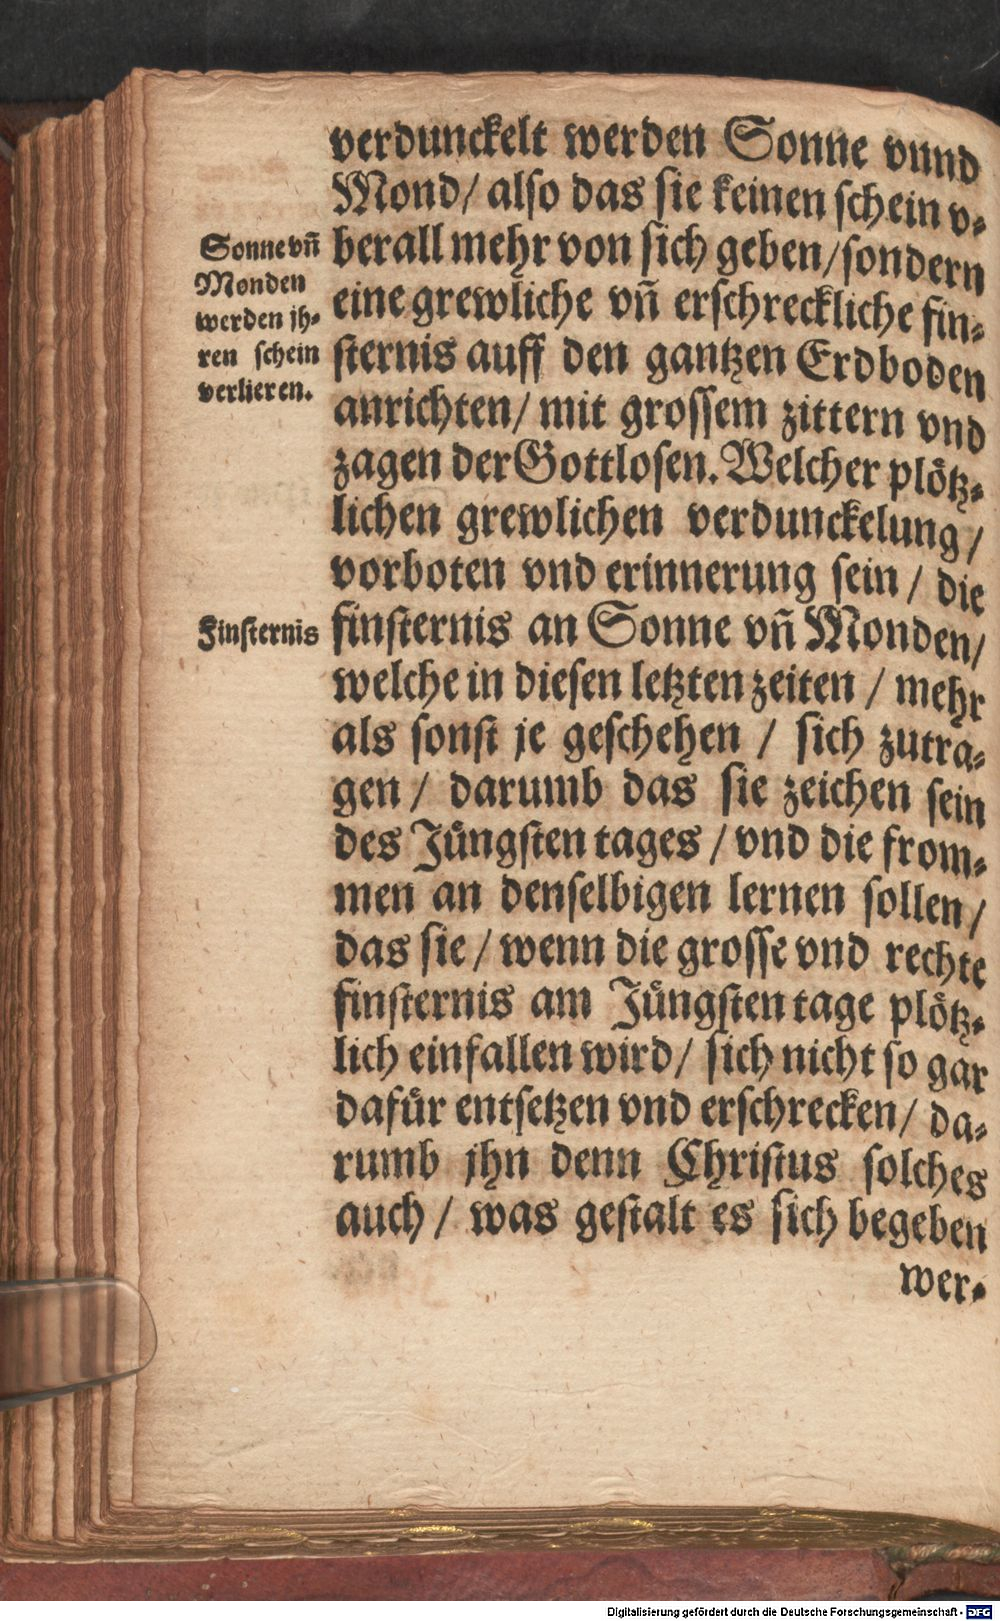 verdunckelt werden Sonne vund
Mond/ also das sie keinen schein v-
berall mehr von sich geben/ sondern
eine grewliche vñ erschreckliche fin-
sternis auff den gantzen Erdboden
anrichten/ mit grossem zittern vnd
zagen der Gottlosen. Welcher plötz-
lichen grewlichen verdunckelung/
vorboten vnd erinnerung sein/ die
finsternis an Sonne vñ Monden/
welche in diesen letzten zeiten / mehr
als sonst je geschehen / sich zutra-
gen / darumb das sie zeichen sein
des Jüngsten tages / vnd die from-
men an denselbigen lernen sollen/
das sie / wenn die grosse vnd rechte
finsternis am Jüngsten tage plötz-
lich einfallen wird/ sich nicht so gar
dafür entsetzen vnd erschrecken/ da-
rumb jhn denn Christus solches
auch / was gestalt es sich begeben
wer-
Sonne vñ
Monden
werden jh-
ren schein
verlieren.
Finsternis
Digitalisierung gefördert durch die Deutsche Forschungsgemeinschaft - DFG